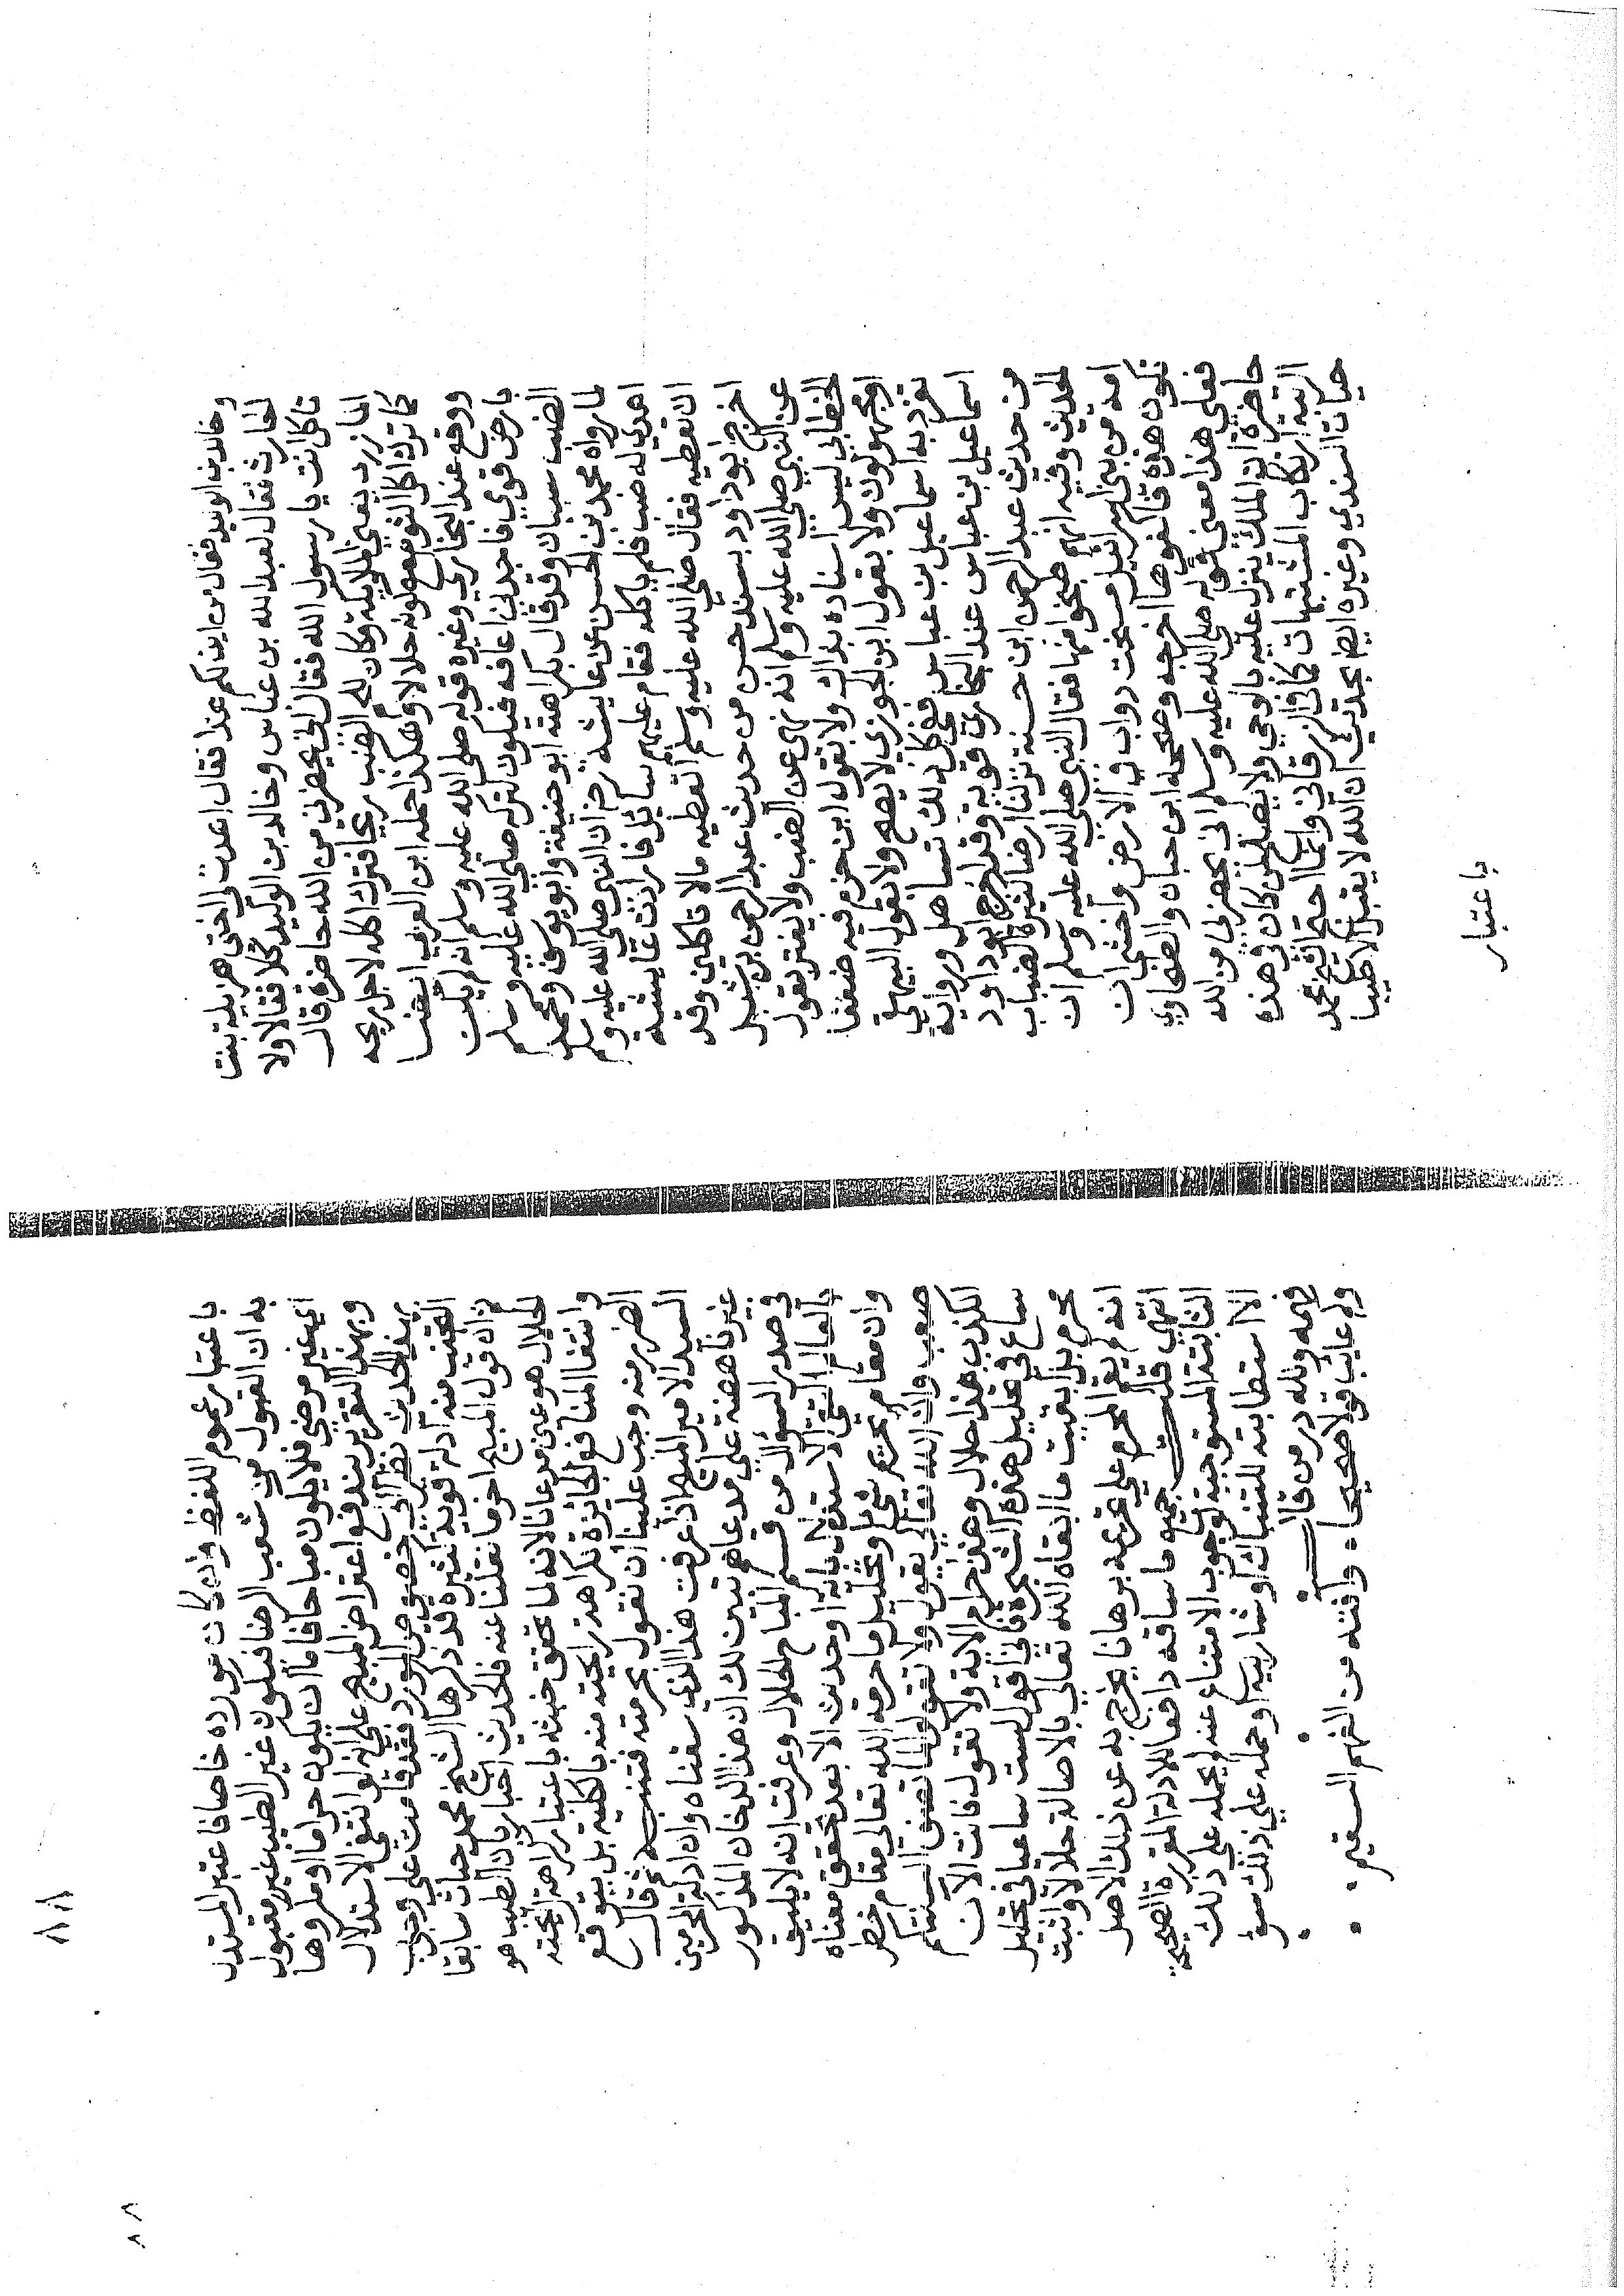 وخالد بن الوليد فقال من اين لكم هذا فقال اهدت لي اختي هزيلة بنت
الحارث فقال لعبد الله بن عباس وخالد بن الوليد كلا فقالا ولا
تاكل انت يا رسول الله فقال اني يحضرني من الله حاضرة قال
المازري يعني الملايكة وكان للحم الضب ريحا فترك اكله لاجل ريحه
كما ترك اكل الثوم مع كونه حلالا وهكذا حمله ابن العربي ايضا
ووقع عند البخاري وغيره قوله صلى الله عليه وسلم انه لم يكن
بارض قومي فاجدني اعافه فيكون تركه صلى الله عليه وسلم
الضب سببان وقد قال بكراهته ابو حنيفة وابو يوسف ومحمد
لما رواه محمد بن الحسن عن عايشة رض ان النبي صلى الله عليه وسلم
اهدي له ضب فلم ياكله فقام عليهم سايل فارادت عايشة
ان تعطيه فقال صلى الله عليه وسلم اتعطيه مالا تاكلين وقد
اخرج ابو داود بسند حسن من حديث عبد الرحمن بن شبل
عن النبي صلى الله عليه وسلم انه نهى عن الضب ولا يغتر بقول
الخطابي ليس اسناده بذاك ولا بقول ابن حزم فيه ضعفا
ومجهولون ولا بقول ابن الجوزي لا يصح ولا بقول البيهقي
تفرد به اسماعيل بن عباس ففي كل ذلك تساهل ورواية
اسماعيل بن عباس عند البخاري قوية وقد اخرج ابو داود
من حديث عبد الرحمن ابن حسنة نزلنا ارضا كثيرة الضباب
الحديث وفيه انهم طبخوا منها فقال النبي صلى الله عليه وسلم ان
امة من بني اسرائيل مسخت دواب في الارض واخشى ان
تكون هذه فاكفوها اخرجه وصححه ابن حبان والطحاوي
فعلى هذا معنى قوله صلى الله عليه وسلم اني يحضرني من الله
حاضرة ان الملك ينزل عليه بالوحي ولا يصلح لمن كان في هذه
الرتبة ارتكاب المشتبهات كما في الزرقاني وانما احتج الشيخ محمد
حيات السندي وغيره ايضا بحديث ان الله لا يقبل الا طيبا
باعتبار
٨٨
باعتبار عموم اللفظ وان كان مورده خاصا فاعتبر المستدل
به ان القبول من شعب الرضا فيكون غير الطيب غير مقبول
اي غير مرضي فلا يكون مباحا فاما ان يكون حراما او مكروها
وبهذا التقرير يندفع اعتراض المبيح على انه لو انتفى الاستدلال
بهذا الحديث نظرا الى خصوص المورد فقد قامت على وجوب
التجنب منه ادلة قوية كثيرة قد ذكرها الشيخ محمد حيات سابقا
ثم ان قول المبيح اخر ما نقلنا عنه فالحديث اخبار بان الطيب هو
الحلال هو عين مدعانا لانه لما تحقق خبثه باعتبار كراهة رايحته
وانتفا المنافع الجائزة لكراهة رايحته منه بالكلية بل يتوقع
الضرر منه وجب علينا ان نقول بحرمته فتنبه ثم قال
السيد الامير المبيح اذا عرفت هذا الذي سقناه وان ادلة المحرمين
غير ناهضة على مدعاهم تبين لك ان هذا الدخان المذكور
في صدر السؤال من قسم المباح الحلال وعرفت انه لا يليق
بالعالم التقي الاستدلال باية او حديث الا بعد تحقق معناه
وان مقام تحريم شي او تحليل ما حرمه الله تعالى مقام خطر
صعب وان الله تعالى يقول ولا تقولوا لما تصف السنتكم
الكذب هذا حلال وهذا حرام الاية ولا تقول فانت الآن
ساع في تحليل هذه الشجرة فاني اقول لست ساعيا في تحليل
محرم بل ابقيت ما ابقاه الله تعالى بالاصالة حلالا واثبت
انه لم يقم المحرم على تحريمه برهانا يخرج به عن ذلك الاصل
انتهى قلت جميع ما ساقه دافعا للادلة المقررة الصحيحة
الثابتة المستوجبة لوجوب الامتناع عنه لم يحمله على ذلك
الا استطابته للتنباك او شاربيه او حمله على ذلك سؤ
فهمه ولله در من قال
وكم عايب قولا صحيحا ۔ وآفته من الفهم السقيم
٨٨